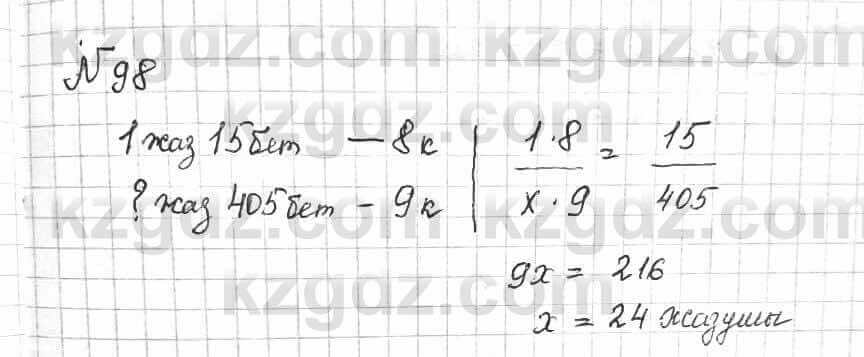 №98
1 жаз 15 бет — 8к | 1·8 / x·9 = 15 / 405
? жаз 405 бет – 9к
9x = 216
x = 24 жазушы
kzgdz.com
kzgdz.com
kzgdz.com
kzgdz.com
kzgdz.com
kzgdz.com